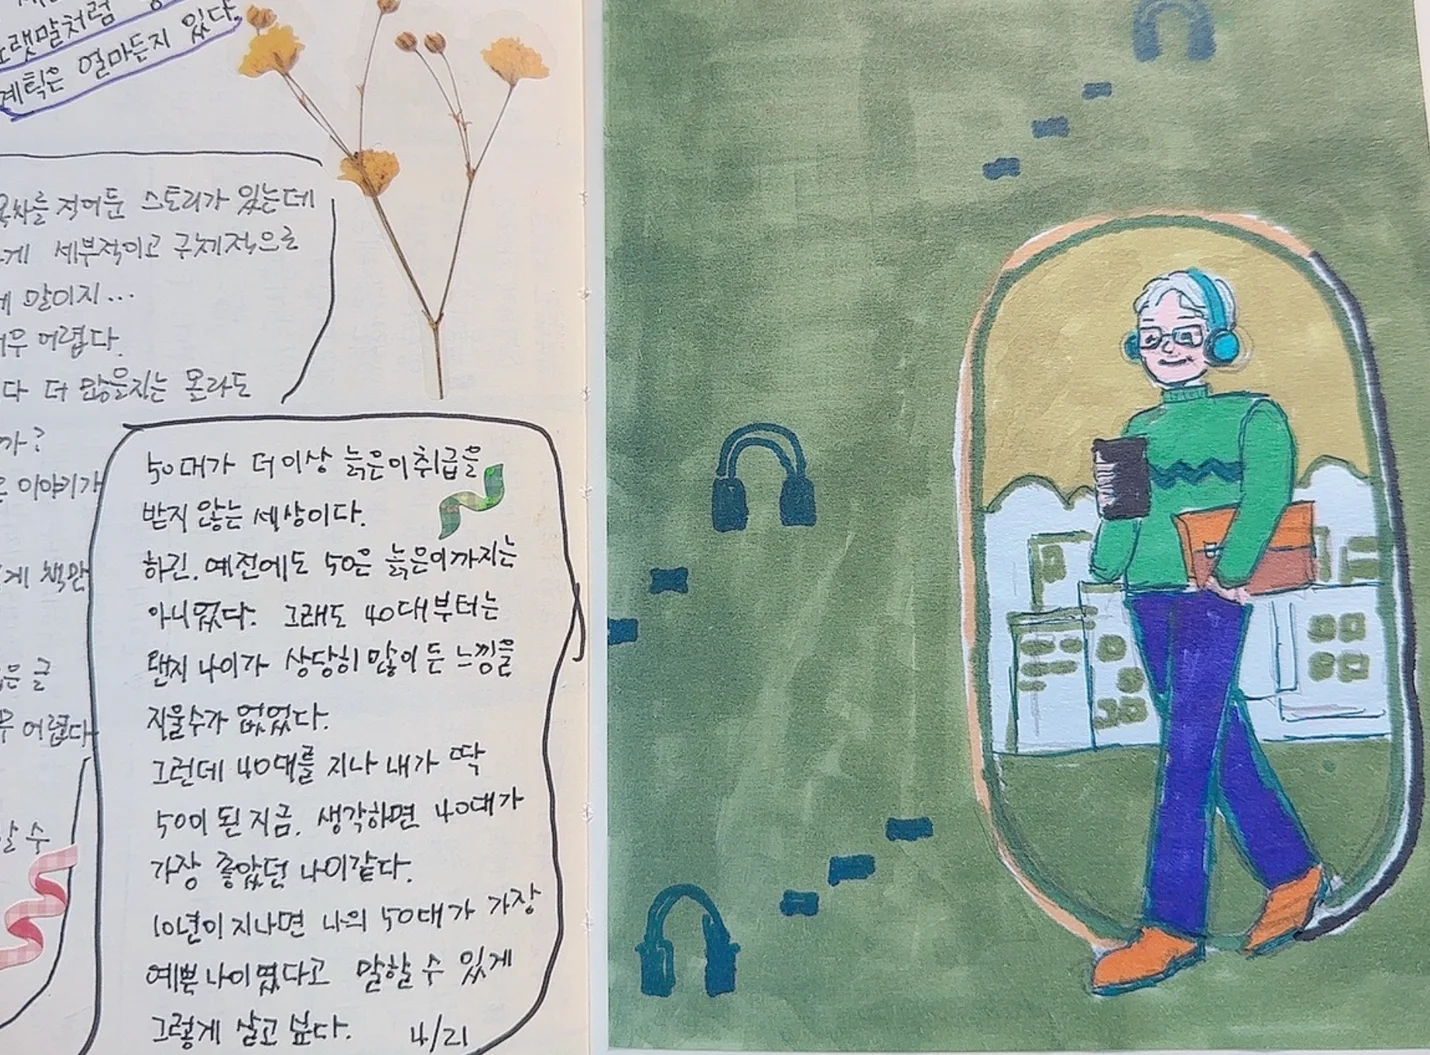 노랫말처럼
계획은 얼마든지 있다.
목차를 적어둔 스토리가 있는데
게 세부적이고 구체적으로
말이지...
어렵다.
다 더 많을지는 몰라도
까?
이야기가
게 책만
글
어렵다
할 수
50대가 더이상 늙은이 취급을
받지 않는 세상이다.
하긴. 예전에도 50은 늙은이까지는
아니었다. 그래도 40대부터는
왠지 나이가 상당히 많이 든 느낌을
지울수가 없었다.
그런데 40대를 지나 내가 딱
50이 된 지금. 생각하면 40대가
가장 좋았던 나이같다.
10년이 지나면 나의 50대가 가장
예쁜 나이였다고 말할 수 있게
그렇게 살고 싶다. 4/21